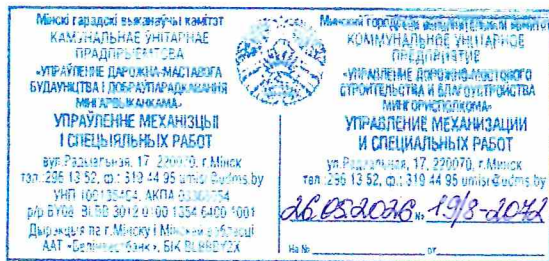 Мінскі гарадскі выканаўчы камітэт
КАМУНАЛЬНАЕ ЎНІТАРНАЕ
ПРАДПРЫЕМСТВА
«УПРАЎЛЕННЕ ДАРОЖНА-МАСТАВОГА
БУДАЎНІЦТВА І ДОБРАЎПАРАДКАВАННЯ
МІНГАРВЫКАНКАМА»
УПРАЎЛЕННЕ МЕХАНІЗЦЫІ
І СПЕЦЫЯЛЬНЫХ РАБОТ
вул.Радыяльная, 17, 220070, г.Мінск
тэл.:296 13 52, ф.: 319 44 95 umisr@udms.by
УНП АКПА
р/р 3012 0100 1354 6400 1001
Дырэкцыя па г.Мінску і Мінскай вобласці
ААТ «Белінвестбанк», БІК
Минский городской исполнительный комитет
КОММУНАЛЬНОЕ УНИТАРНОЕ
ПРЕДПРИЯТИЕ
«УПРАВЛЕНИЕ ДОРОЖНО-МОСТОВОГО
СТРОИТЕЛЬСТВА И БЛАГОУСТРОЙСТВА
МИНГОРИСПОЛКОМА»
УПРАВЛЕНИЕ МЕХАНИЗАЦИИ
И СПЕЦИАЛЬНЫХ РАБОТ
ул.Радиальная, 17, 220070, г.Минск
тел.:296 13 52, ф.: 319 44 95 umisr@udms.by
26.05.2026 № 19/8-2072
На № от